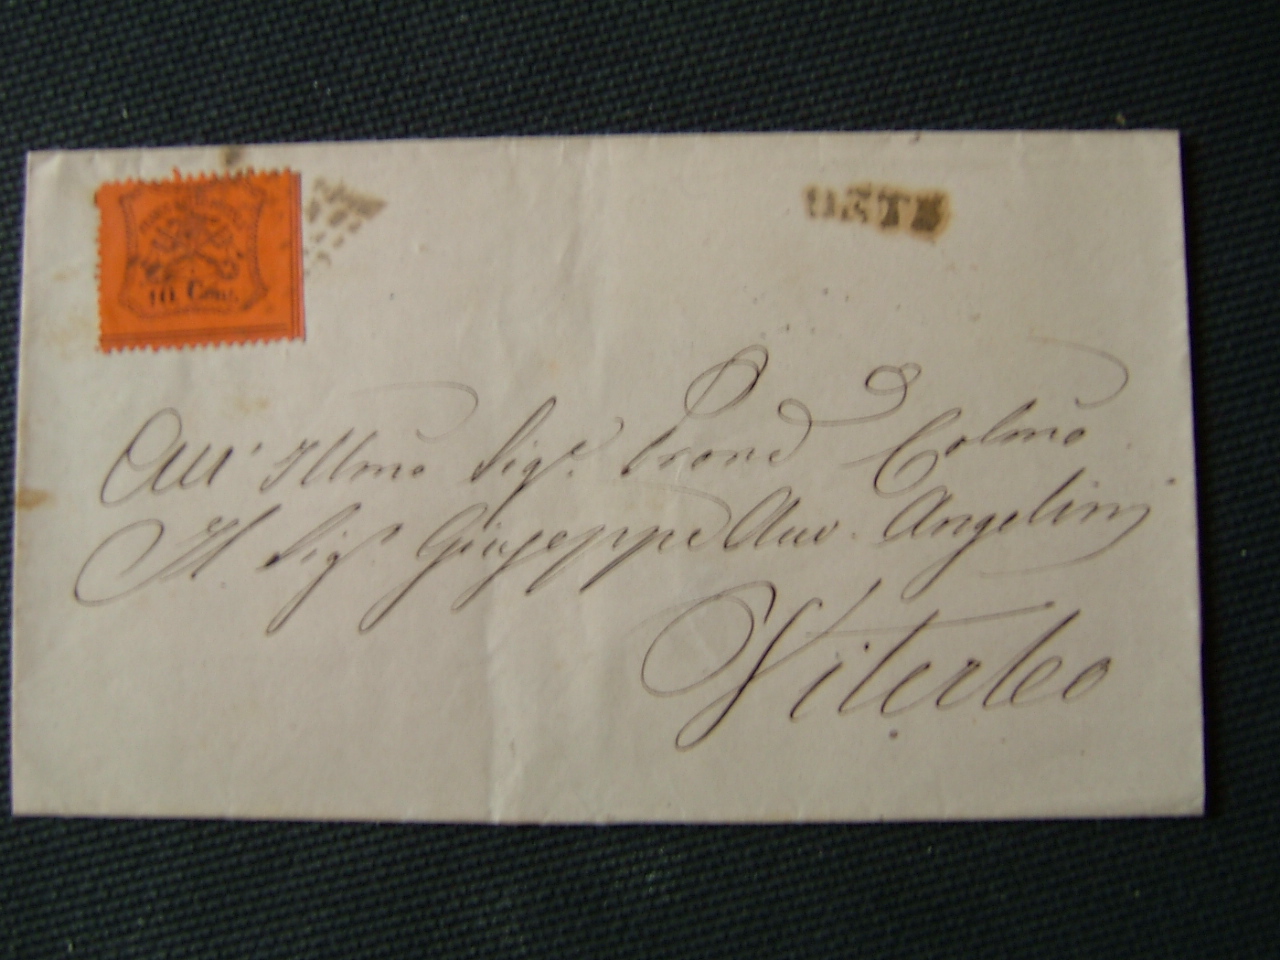 10. Cent.
ORTE
All' Illmo Sigr. Prone Colmo
Il Sigr Giuseppe Avv. Angelini
Viterbo